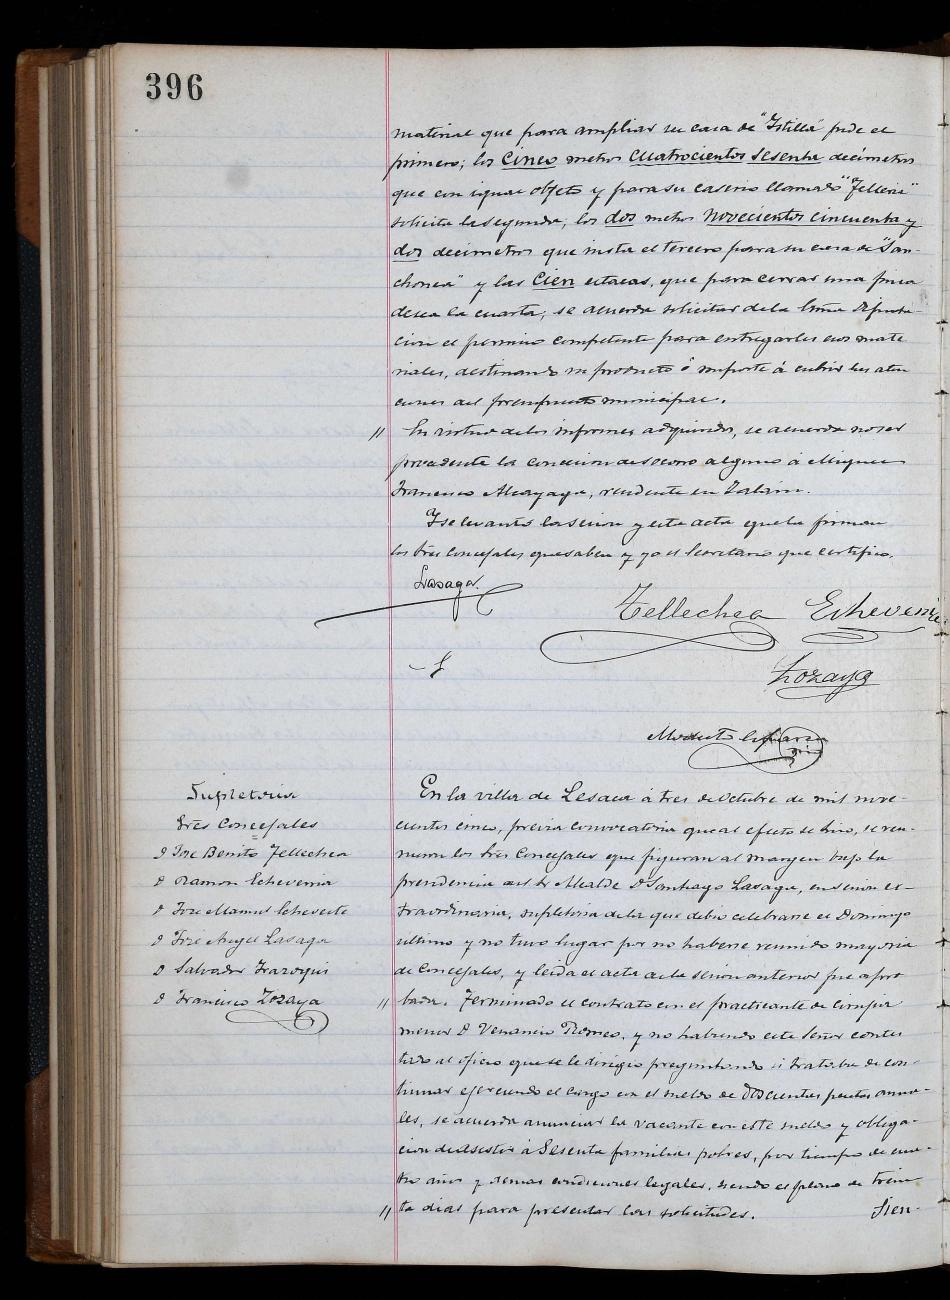 396
material que para ampliar su casa de "Istilla" pide el
primero; los Cinco metros Cuatrocientos Sesenta decímetros
que con igual objeto y para su caserio llamado "Telleria"
solicita la segunda; los dos metros Novecientos cincuenta y
dos decimetros que insta el tercero para su casa de "San-
chonea" y las Cien estacas, que para cerrar una finca
desea la cuarta; se acuerda solicitar de la Excma Diputa-
cion el permiso competente para entregarles esos mate
riales, destinando su producto ó importe á cubrir las aten
ciones del presupuesto municipal.
// En virtud de los informes adquiridos, se acuerda no ser
procedente la concesion de socorro alguno á Miguel
Francisco Alzayaga, residente en
Y se levantó la sesion y esta acta que la firman
los tres Concejales que saben y yo el Secretario que certifico.
Lasaga
Tellechea Echeverria
Zozaya
Modesto Esparza
Supletoria
Sres Concejales
D Jose Benito Tellechea
D Ramon Echeverria
D Jose Manuel Echeveste
D José Angel Lasaga
D Salvador Irazoqui
D Francisco Zozaya
En la villa de Lesaca á tres de Octubre de mil nove-
cientos cinco, previa convocatoria que al efecto se hizo, se reu-
nieron los tres Concejales que figuran al margen bajo la
presidencia del Sr Alcalde D Santiago Lasaga, en sesion ex-
traordinaria, supletoria de la que debio celebrarse el Domingo
ultimo y no tuvo lugar por no haberse reunido mayoria
de Concejales, y leida el acta de la sesion anterior fue apro
// bada. Terminado el contrato con el practicante de cirujia
menor D Venancio Romeo, y no habiendo este Señor contes
tado al oficio que se le dirigio preguntando si trataba de con-
tinuar ejerciendo el cargo con el sueldo de doscientas pesetas anua-
les, se acuerda anunciar la vacante con este sueldo y obliga-
cion de asistir á Sesenta familias pobres, por tiempo de cua-
tro años y demas condiciones legales, siendo el plazo de trein
// ta dias para presentar las solicitudes. Sien-